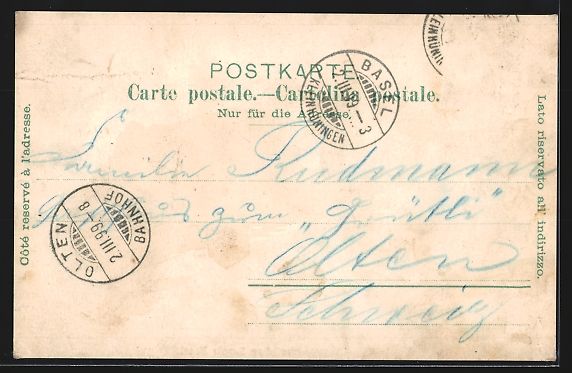 POSTKARTE
Carte postale.—Cartolina postale.
Nur für die Adresse.
Côté reservé à l'adresse.
Lato riservato all' indirizzo.
BASEL
KLEINHÜNINGEN
KLEINHÜNIN
OLTEN
BAHNHOF
2.III.99 - 8
Familie Rudmann
zum „Grütli"
Olten
Schweiz